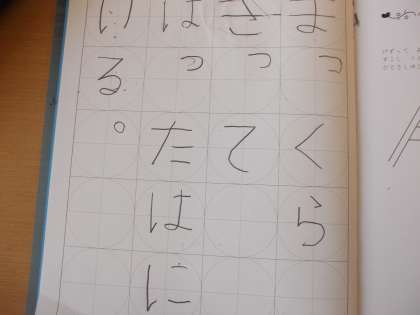 まっくら
きって
はったはに
る。